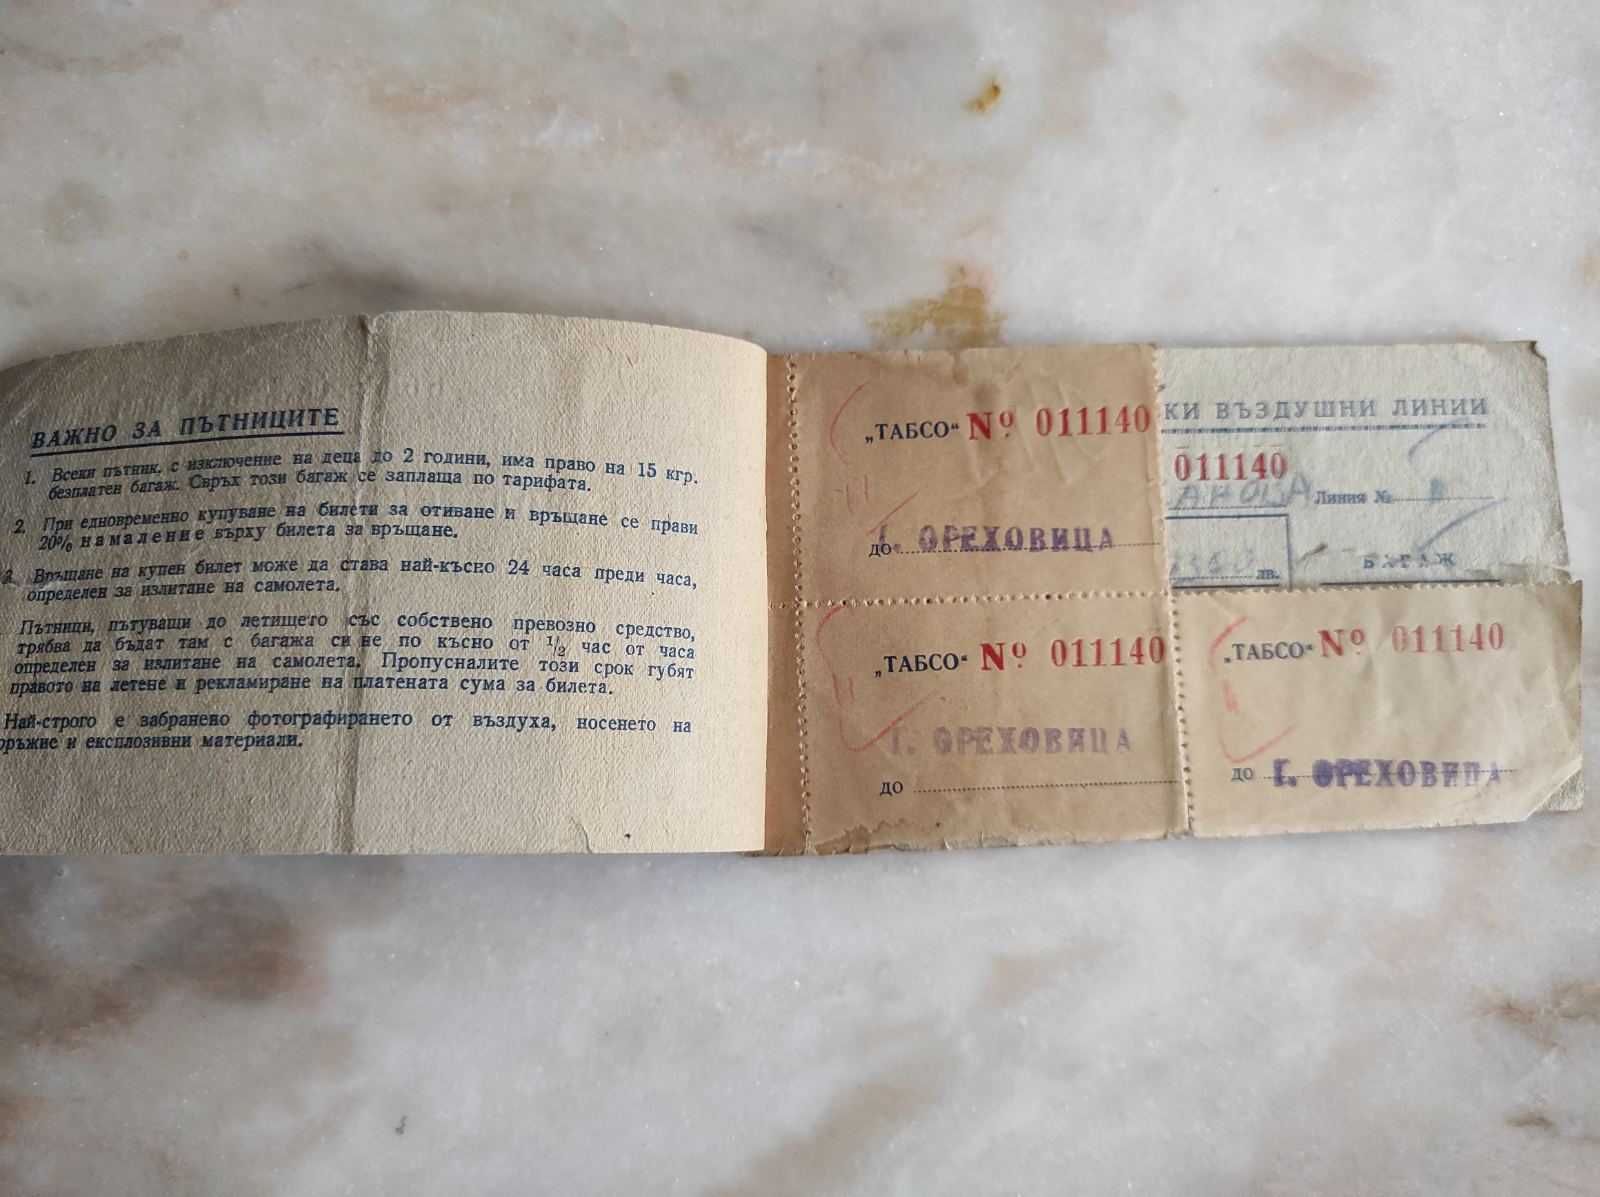 ВАЖНО ЗА ПЪТНИЦИТЕ
1. Всеки пътник, с изключение на деца до 2 години, има право на 15 кгр.
безплатен багаж. Свръх този багаж се заплаща по тарифата.
2. При едновременно купуване на билети за отиване и връщане се прави
20% намаление върху билета за връщане.
3. Връщане на купен билет може да става най-късно 24 часа преди часа,
определен за излитане на самолета.
Пътници, пътуващи до летището със собствено превозно средство,
трябва да бъдат там с багажа си не по късно от 1/2 час от часа
определен за излитане на самолета. Пропусналите този срок губят
правото на летене и рекламиране на платената сума за билета.
Най-строго е забранено фотографирането от въздуха, носенето на
оръжие и експлозивни материали.
„ТАБСО“ № 011140
до Г. ОРЕХОВИЦА
„ТАБСО“ № 011140
Г. ОРЕХОВИЦА
до
КИ ВЪЗДУШНИ ЛИНИИ
011140
Линия №
лв.
БАГАЖ
„ТАБСО“ № 011140
до Г. ОРЕХОВИЦА